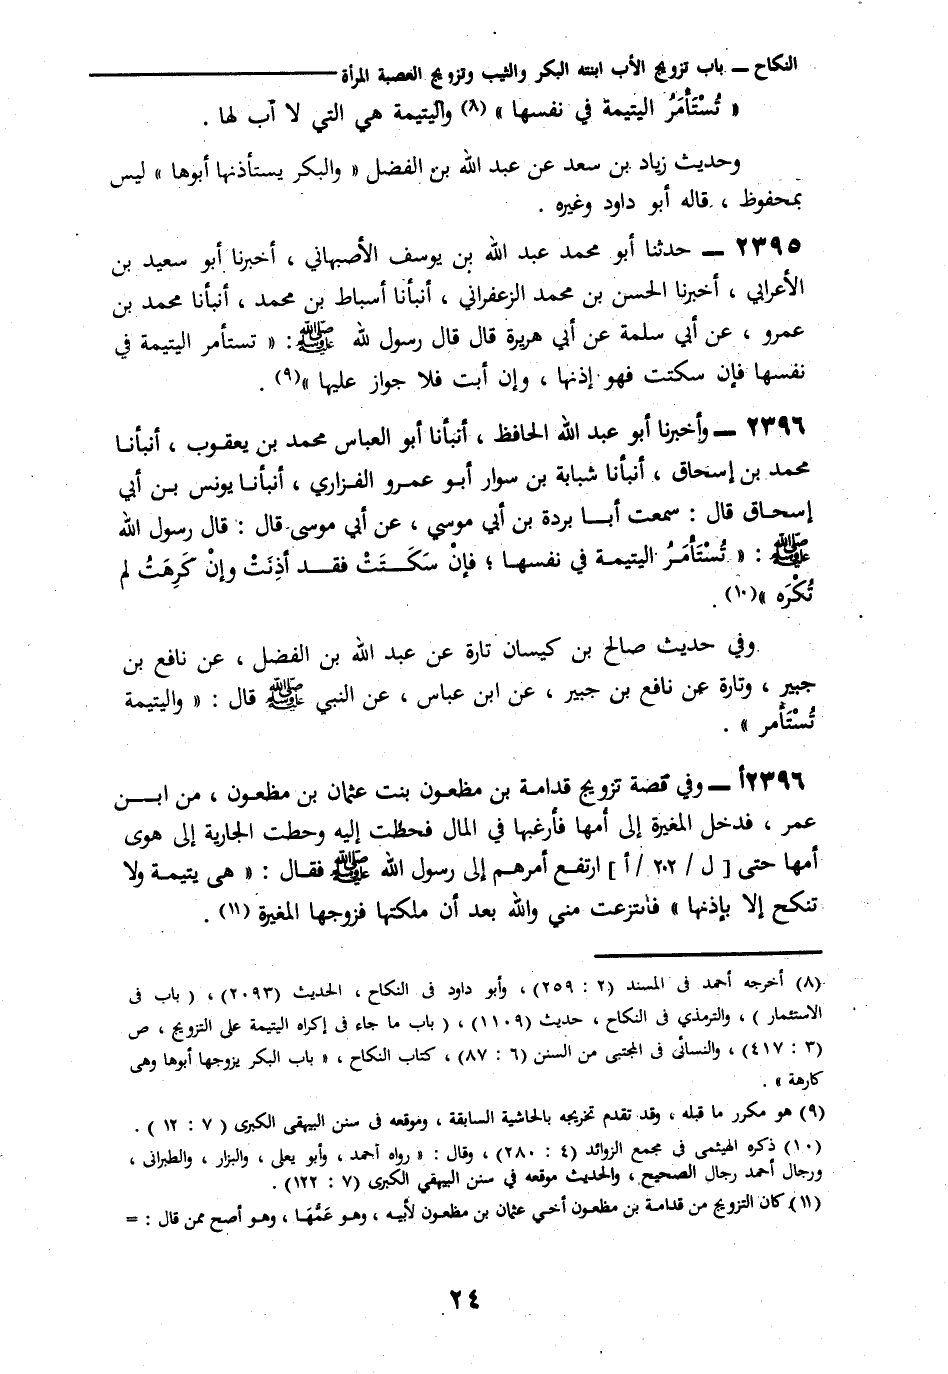 النكاح ــ باب تزويج الأب ابنته البكر والثيب وتزويج العصبة المرأة
« تُسْتَأْمَرُ اليتيمة في نفسها »(٨) واليتيمة هي التي لا أب لها .
وحديث زياد بن سعد عن عبد الله بن الفضل « والبكر يستأذنها أبوها » ليس
بمحفوظ ، قاله أبو داود وغيره .
٢٣٩٥ ــ حدثنا أبو محمد عبد الله بن يوسف الأصبهاني ، أخبرنا أبو سعيد بن
الأعرابي ، أخبرنا الحسن بن محمد الزعفراني ، أنبأنا أسباط بن محمد ، أنبأنا محمد بن
عمرو ، عن أبي سلمة عن أبي هريرة قال قال رسول لله ﷺ : « تستأمر اليتيمة في
نفسها فإن سكتت فهو إذنها ، وإن أبت فلا جواز عليها »(٩) .
٢٣٩٦ ــ وأخبرنا أبو عبد الله الحافظ ، أنبأنا أبو العباس محمد بن يعقوب ، أنبأنا
محمد بن إسحاق ، أنبأنا شبابة بن سوار أبو عمرو الفزاري ، أنبأنا يونس بن أبي
إسحاق قال : سمعت أبا بردة بن أبي موسي ، عن أبي موسى قال : قال رسول الله
ﷺ : « تُسْتَأْمَرُ اليتيمة في نفسها ؛ فإنْ سَكَتَتْ فقد أذِنَتْ وإنْ كَرِهَتْ لم
تُكْرَه »(١٠) .
وفي حديث صالح بن كيسان تارة عن عبد الله بن الفضل ، عن نافع بن
جبير ، وتارة عن نافع بن جبير ، عن ابن عباس ، عن النبي ﷺ قال : « واليتيمة
تُسْتَأمر » .
٢٣٩٦أ ــ وفي قصة تزويج قدامة بن مظعون بنت عثمان بن مظعون ، من ابن
عمر ، فدخل المغيرة إلى أمها فأرغبها في المال فحطت إليه وحطت الجارية إلى هوى
أمها حتى [ ل / ٢٠٢ / أ ] ارتفع أمرهم إلى رسول الله ﷺ فقال : « هى يتيمة ولا
تنكح إلا بإذنها » فانتزعت مني والله بعد أن ملكتها فزوجها المغيرة (١١) .
(٨) أخرجه أحمد فى المسند (٢ : ٢٥٩) ، وأبو داود فى النكاح ، الحديث (٢٠٩٣) ، ( باب فى
الاستئمار ) ، والترمذي فى النكاح ، حديث (١١٠٩) ، ( باب ما جاء فى إكراه اليتيمة على التزويج ، ص
(٣ : ٤١٧) ، والنسائى فى المجتبى من السنن (٦ : ٨٧) ، كتاب النكاح ، « باب البكر يزوجها أبوها وهى
كارهة » .
(٩) هو مكرر ما قبله ، وقد تقدم تخريجه بالحاشية السابقة ، وموقعه فى سنن البيهقى الكبرى ( ٧ : ١٢ ) .
(١٠) ذكره الهيثمى فى مجمع الزوائد (٤ : ٢٨٠) ، وقال : « رواه أحمد ، وأبو يعلى ، والبزار ، والطبرانى ،
ورجال أحمد رجال الصحيح ، والحديث موقعه في سنن البيهقي الكبرى (٧ : ١٢٢) .
(١١) كان التزويج من قدامة بن مظعون أخي عثمان بن مظعون لأبيه ، وهو عَمُّها ، وهو أصح ممن قال : =
٢٤